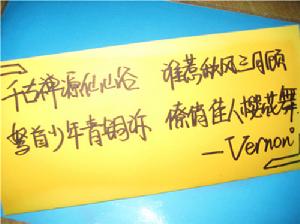 千古禅源仙山谷 谁惹秋风三月顾
驽首少年青铜诉 僚俏佳人樱花舞
—Vernon